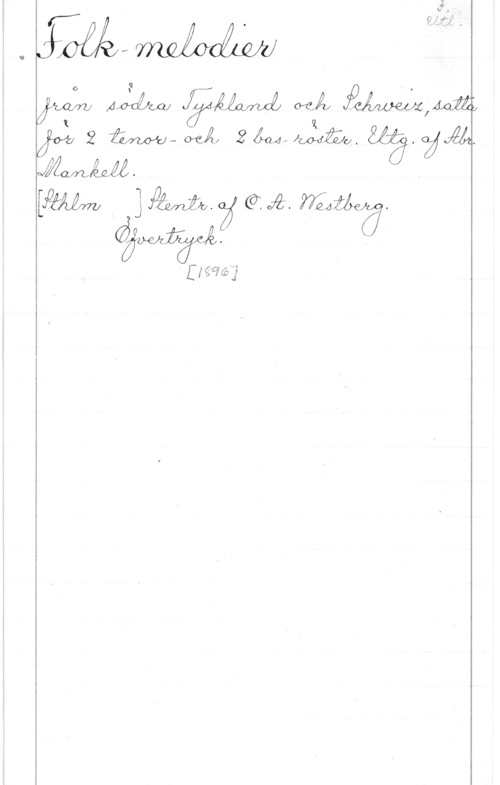 Utl.
Folk-melodier
från södra Tyskland och Schweiz, satta
för 2 tenor- och 2 bas-röster. Utg. af Abr.
Mankell.
[Sthlm ] Stentr. af C. A. Westberg.
Öfvertryck.
[1896]